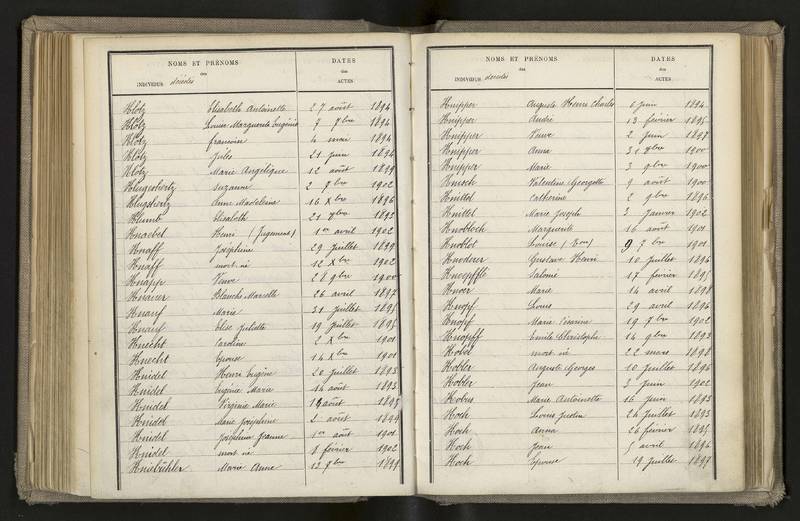 NOMS ET PRÉNOMS
des
INDIVIDUS décédés
DATES
des
ACTES
Klotz Elisabeth Antoinette 27 août 1894
Klotz Louise Marguerite Eugénie 7 7bre 1894
Klotz françoise 4 mai 1894
Klotz Jules 21 juin 1896
Klotz Marie Angélique 12 août 1899
Klugesherz Suzanne 2 7bre 1902
Klugsherz Anne Madeleine 16 Xbre 1896
Klumb Elisabeth 21 9bre 1893
Knaebel Henri (Jugement) 1er avril 1902
Knaff Joséphine 29 Juillet 1899
Knaff mort né 12 Xbre 1902
Knapp Veuve 28 9bre 1900
Knauer Blanche Marcelle 26 avril 1897
Knauf Marie 31 Juillet 1895
Knauf Elise Juliette 19 Juillet 1895
Knecht Caroline 2 Xbre 1901
Knecht Epouse 14 Xbre 1901
Knidel Henri Eugène 20 Juillet 1893
Knidel Eugénie Marie 14 août 1893
Knidel Virginie Marie 16 août 1893
Knidel Marie Joséphine 2 août 1894
Knidel Joséphine Jeanne 1er août 1901
Knidel mort né 8 février 1902
Kniebühler Marie Anne 12 9bre 1899
NOMS ET PRÉNOMS
des
INDIVIDUS décédés
DATES
des
ACTES
Knipper Auguste Henri Charles 6 juin 1894
Knipper André 13 février 1895
Knipper Veuve 2 Juin 1897
Knipper Anna 31 1900
Knipper Marie 3 9bre 1900
Knisch Valentine Georgette 9 août 1900
Knittel Catherine 2 9bre 1896
Knittel Marie Joseph 3 Janvier 1902
Knobloch Marguerite 16 août 1901
Knoblot Louise 9 7bre 1901
Knoderer Gustave Henri 10 Juillet 1896
Knoepffle Salomé 17 février 1895
Knoer Marie 14 avril 1898
Knopf Louis 29 avril 1896
Knopf Marie Césarine 19 7bre 1902
Knopff Emile Christophe 14 9bre 1893
Kobel mort né 22 mars 1898
Kobler Auguste Georges 10 Juillet 1896
Kobler Jean 3 Juin 1902
Kobus Marie Antoinette 16 Juin 1893
Koch Louis Justin 24 Juillet 1893
Koch Anna 26 février 1895
Koch Jean 5 avril 1896
Koch Epouse 19 Juillet 1897